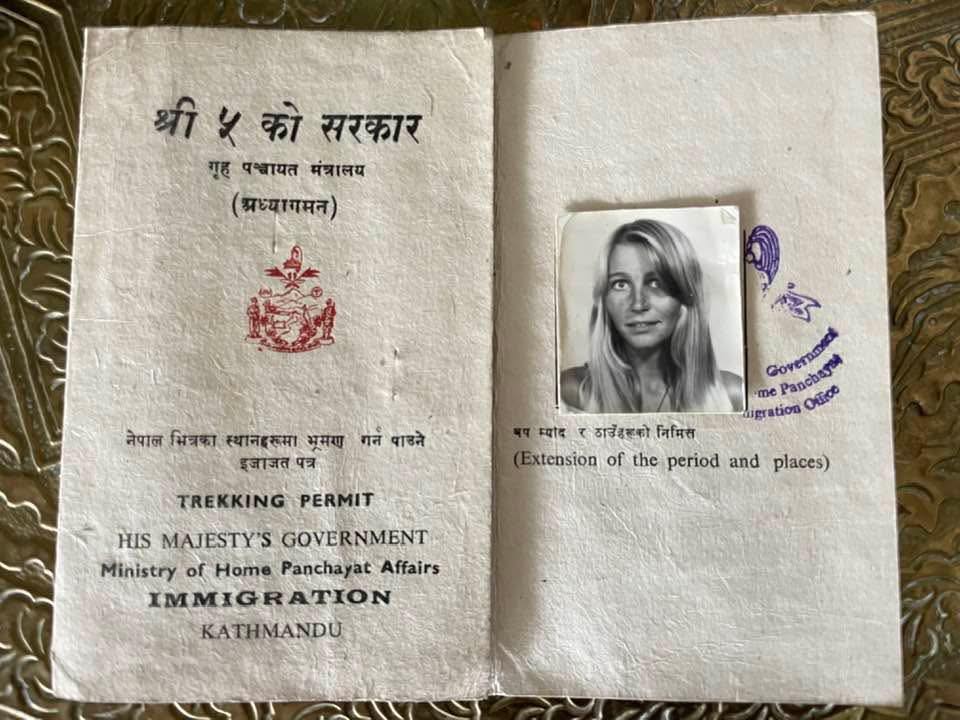 श्री ५ को सरकार
गृह पञ्चायत मंत्रालय
(अध्यागमन)
नेपाल भित्रका स्थानहरूमा भ्रमण गर्न पाउने
इजाजत पत्र
TREKKING PERMIT
HIS MAJESTY'S GOVERNMENT
Ministry of Home Panchayat Affairs
IMMIGRATION
KATHMANDU
Government
me Panchayat
migration Office
थप म्याद र ठाउँहरूको निमित्त
(Extension of the period and places)